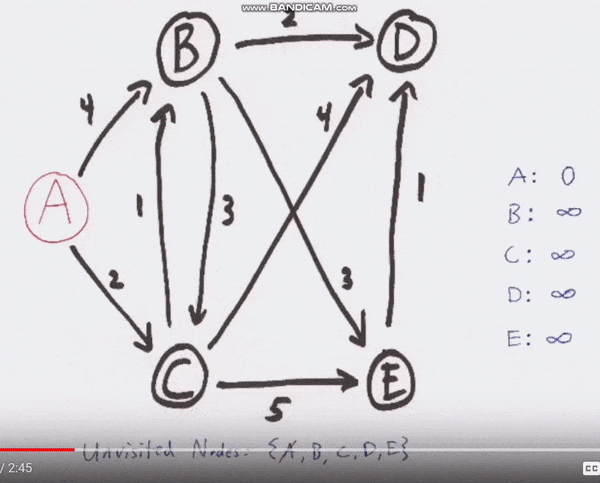 www.BANDICAM.com
2
B
D
4
4
A
1
3
1
2
3
C
E
5
A: 0
B: ∞
C: ∞
D: ∞
E: ∞
Unvisited Nodes: {A, B, C, D, E}
/ 2:45
CC